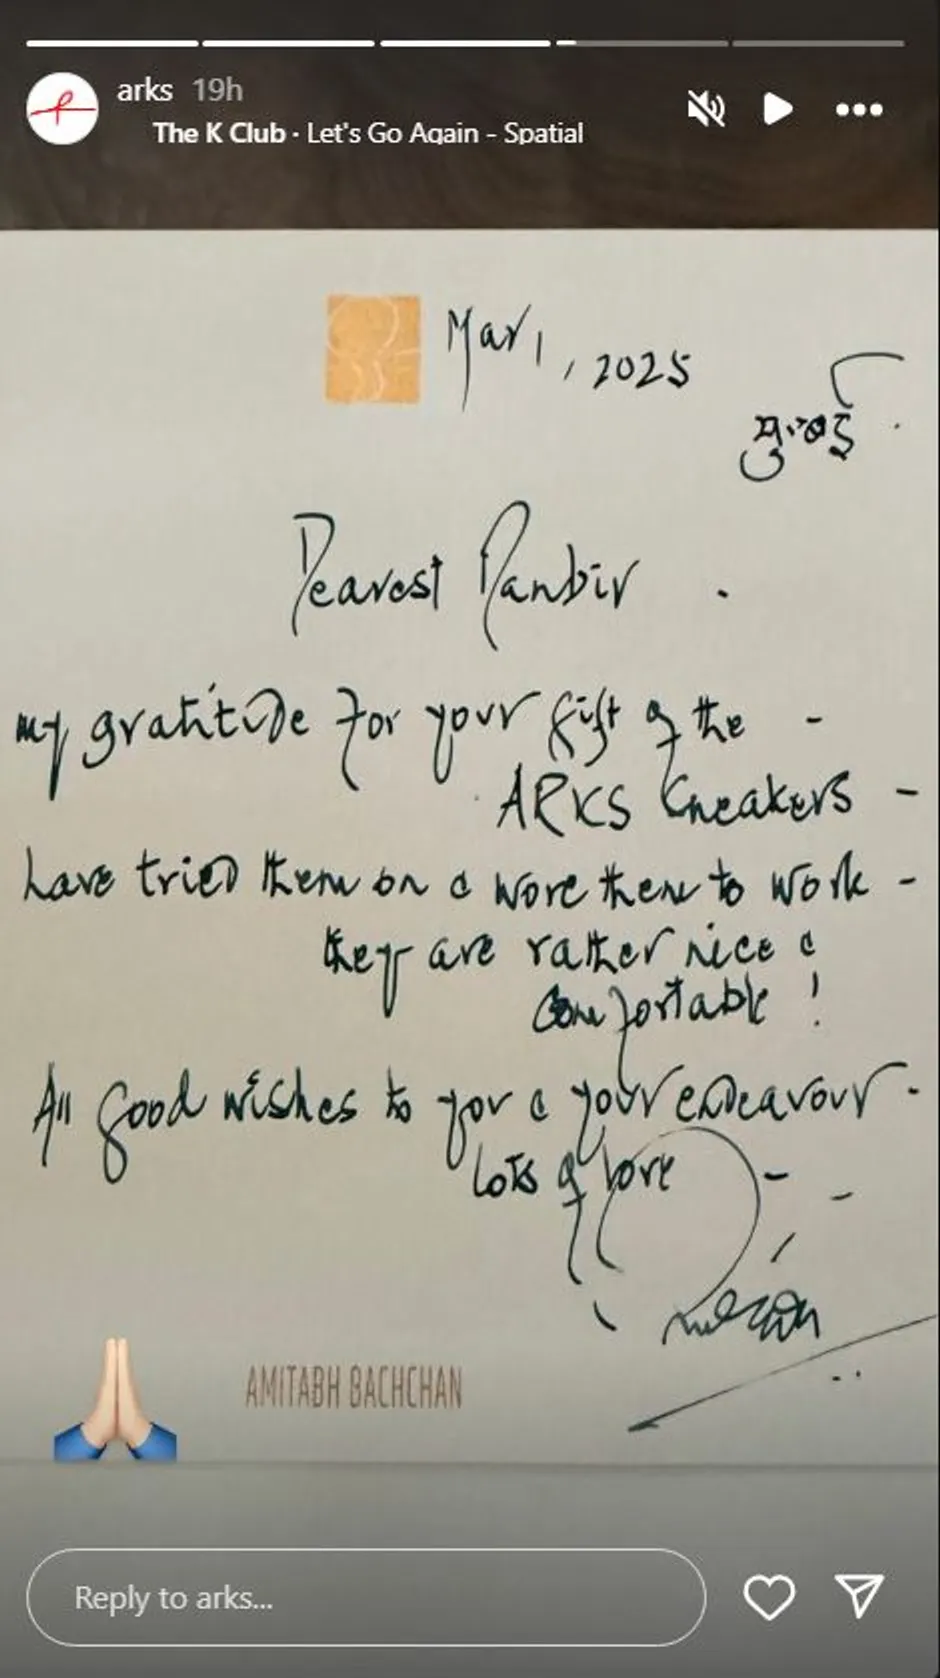 arks 19h
The K Club · Let's Go Again - Spatial
Mar 1, 2025
मुंबई
Dearest Ranbir .
my gratitude for your gift of the -
ARKS Sneakers -
have tried them on & wore them to work -
they are rather nice &
comfortable !
All good wishes to you & your endeavour -
lots of love - -
AMITABH BACHCHAN
Reply to arks...